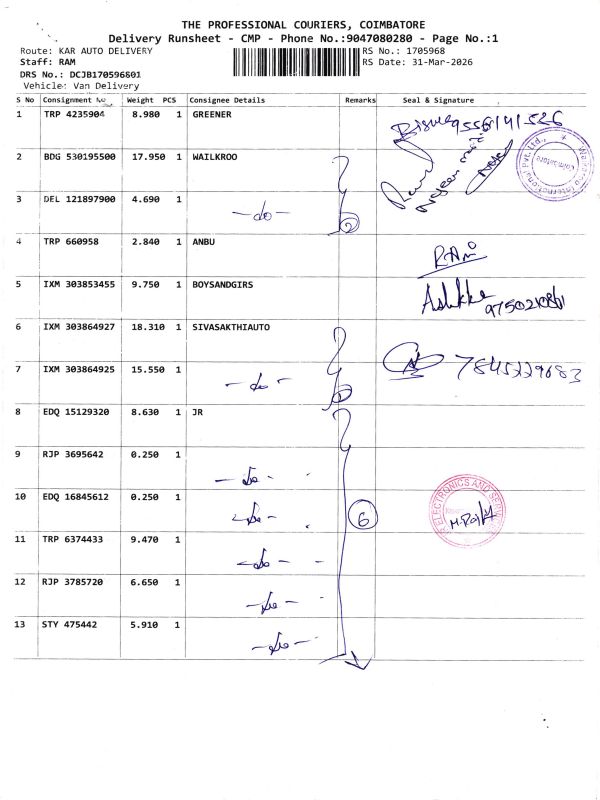 THE PROFESSIONAL COURIERS, COIMBATORE
Delivery Runsheet - CMP - Phone No.:9047080280 - Page No.:1
Route: KAR AUTO DELIVERY RS No.: 1705968
Staff: RAM RS Date: 31-Mar-2026
DRS No.: DCJB170596801
Vehicle: Van Delivery
S No Consignment No Weight PCS Consignee Details Remarks Seal & Signature
1 TRP 4235904 8.980 1 GREENER
2 BDG 530195500 17.950 1 WAILKROO
3 DEL 121897900 4.690 1 -do- 2
4 TRP 660958 2.840 1 ANBU RAM
5 IXM 303853455 9.750 1 BOYSANDGIRS
6 IXM 303864927 18.310 1 SIVASAKTHIAUTO
7 IXM 303864925 15.550 1 -do- 2 7845229683
8 EDQ 15129320 8.630 1 JR
9 RJP 3695642 0.250 1 -do-
ELECTRONICS AND
10 EDQ 16845612 0.250 1 -do- 6
11 TRP 6374433 9.470 1 -do-
12 RJP 3785720 6.650 1 -do-
13 STY 475442 5.910 1 -do-